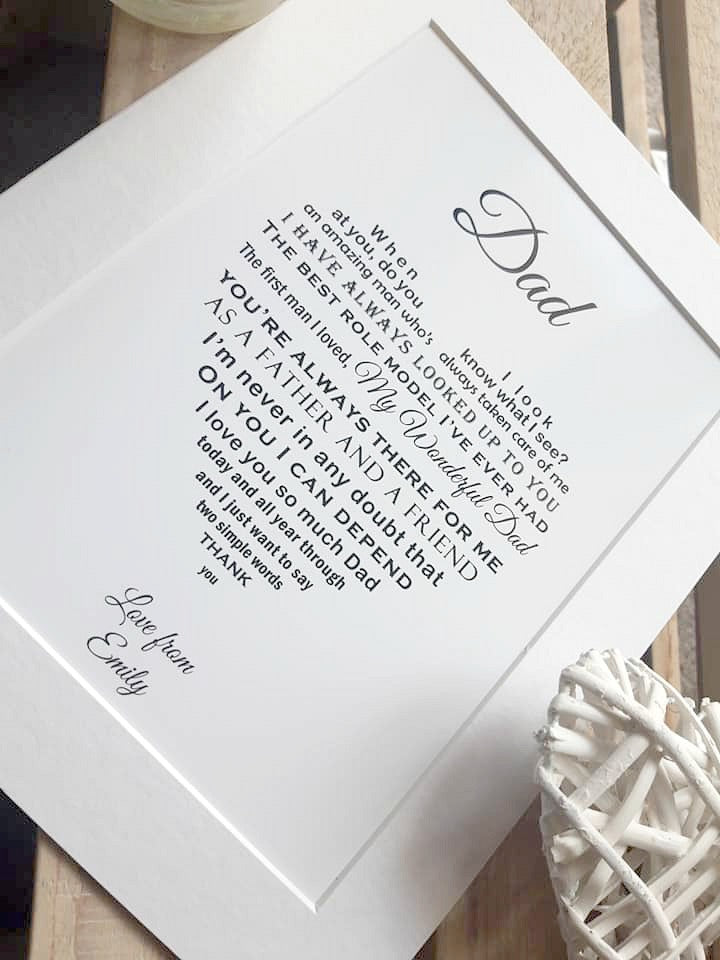 Dad
When I look
at you, do you know what I see?
an amazing man who's always taken care of me
I HAVE ALWAYS LOOKED UP TO YOU
THE BEST ROLE MODEL I'VE EVER HAD
The first man I loved, My Wonderful Dad
YOU'RE ALWAYS THERE FOR ME
AS A FATHER AND A FRIEND
I'm never in any doubt that
ON YOU I CAN DEPEND
I love you so much Dad
today and all year through
and I just want to say
two simple words
THANK
you
Love from
Emily